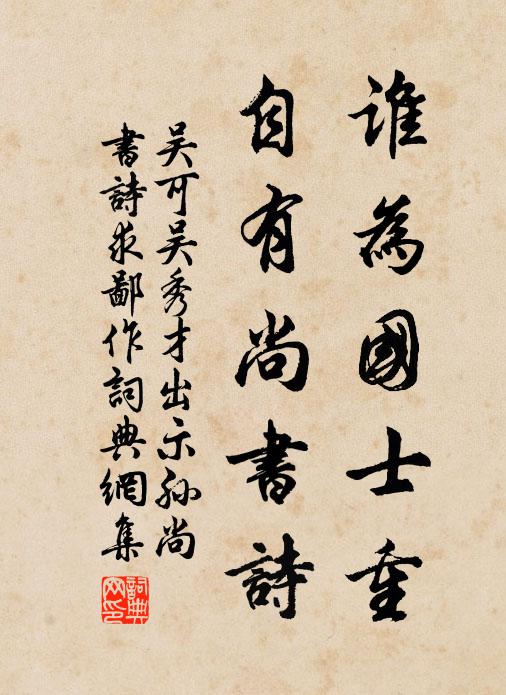 誰為國士重
自有尚書詩
吳可吳秀才出示孫尚
書詩求鄙作詞典網集
詞典網印